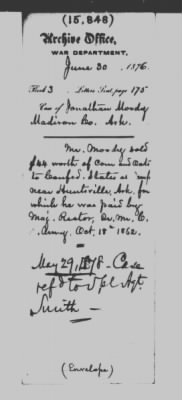 (15,848)
Archive Office,
WAR DEPARTMENT,
June 30 1876.
Book 3 Letters Sent, page 175
Case of Jonathan Moody
Madison Co. Ark.
Mr. Moody sold
$44 worth of Corn and Oats
to Confed. States at
near Huntsville, Ark. for
which he was paid by
Maj. Rector, Qr. Mr. C.
Army, Oct. 18th 1862.
May 29, 1878 - Case
refd to Spl Agt.
Smith -
(Envelope)